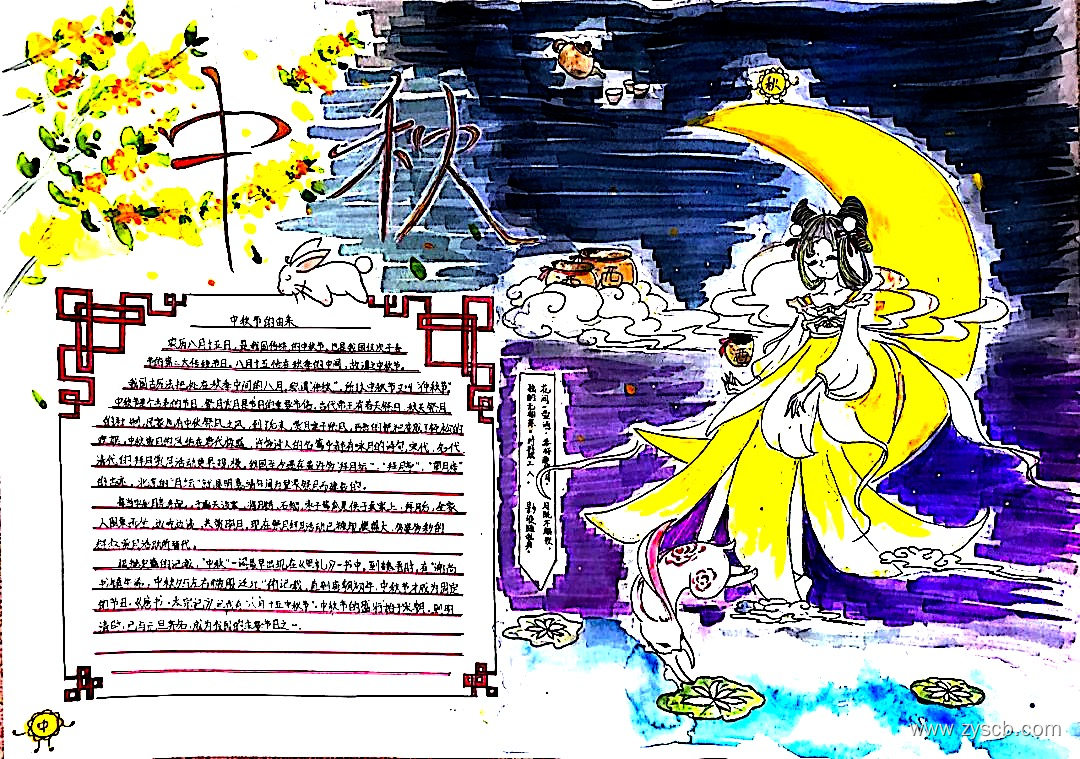 中秋
秋
酒
中秋节的由来
农历八月十五日，是我国传统的中秋节，也是我国仅次于春
节的第二大传统节日，八月十五恰在秋季的中间，故谓之中秋节。
我国古历法把处在秋季中间的八月，称谓“仲秋”，所以中秋节又叫“仲秋节”
中秋节是个古老的节日，祭月赏月是节日的重要习俗，古代帝王有春天祭日，秋天祭月
的社制，民家也有中秋祭月之风，到了后来赏月重于祭月，严肃的祭祀变成了轻松的
欢娱，中秋赏月的风俗在唐代极盛，许多诗人的名篇中都有咏月的诗句，宋代、明代
清代的拜月赏月活动更是规模，我国至今遗存着许多“拜月坛”、“拜月亭”、“望月楼”
的古迹，北京的“月坛”就是明嘉靖年间为皇家祭月而建造的。
每当中秋月亮升起，于露天设案，将月饼、石榴、枣子等瓜果供于桌案上，拜月后，全家
人围桌而坐，边吃边谈，共赏明月，现在祭月拜月活动已被规模盛大、多姿多彩的
群众赏月活动所替代。
根据史籍的记载，“中秋”一词最早出现在《周礼》一书中，到魏晋时，有“谕尚
书镇牛渚，中秋夕与左右微服泛江”的记载，直到唐朝初年，中秋节才成为固定
的节日，《唐书·太宗记》记载有“八月十五中秋节”，中秋节的盛行始于宋朝，到明
清时，已与元旦齐名，成为我国的主要节日之一。
花间一壶酒，
独酌无相亲。举杯邀明月，
对影成三人。月既不解饮，
影徒随我身。
中
www.zyscb.com